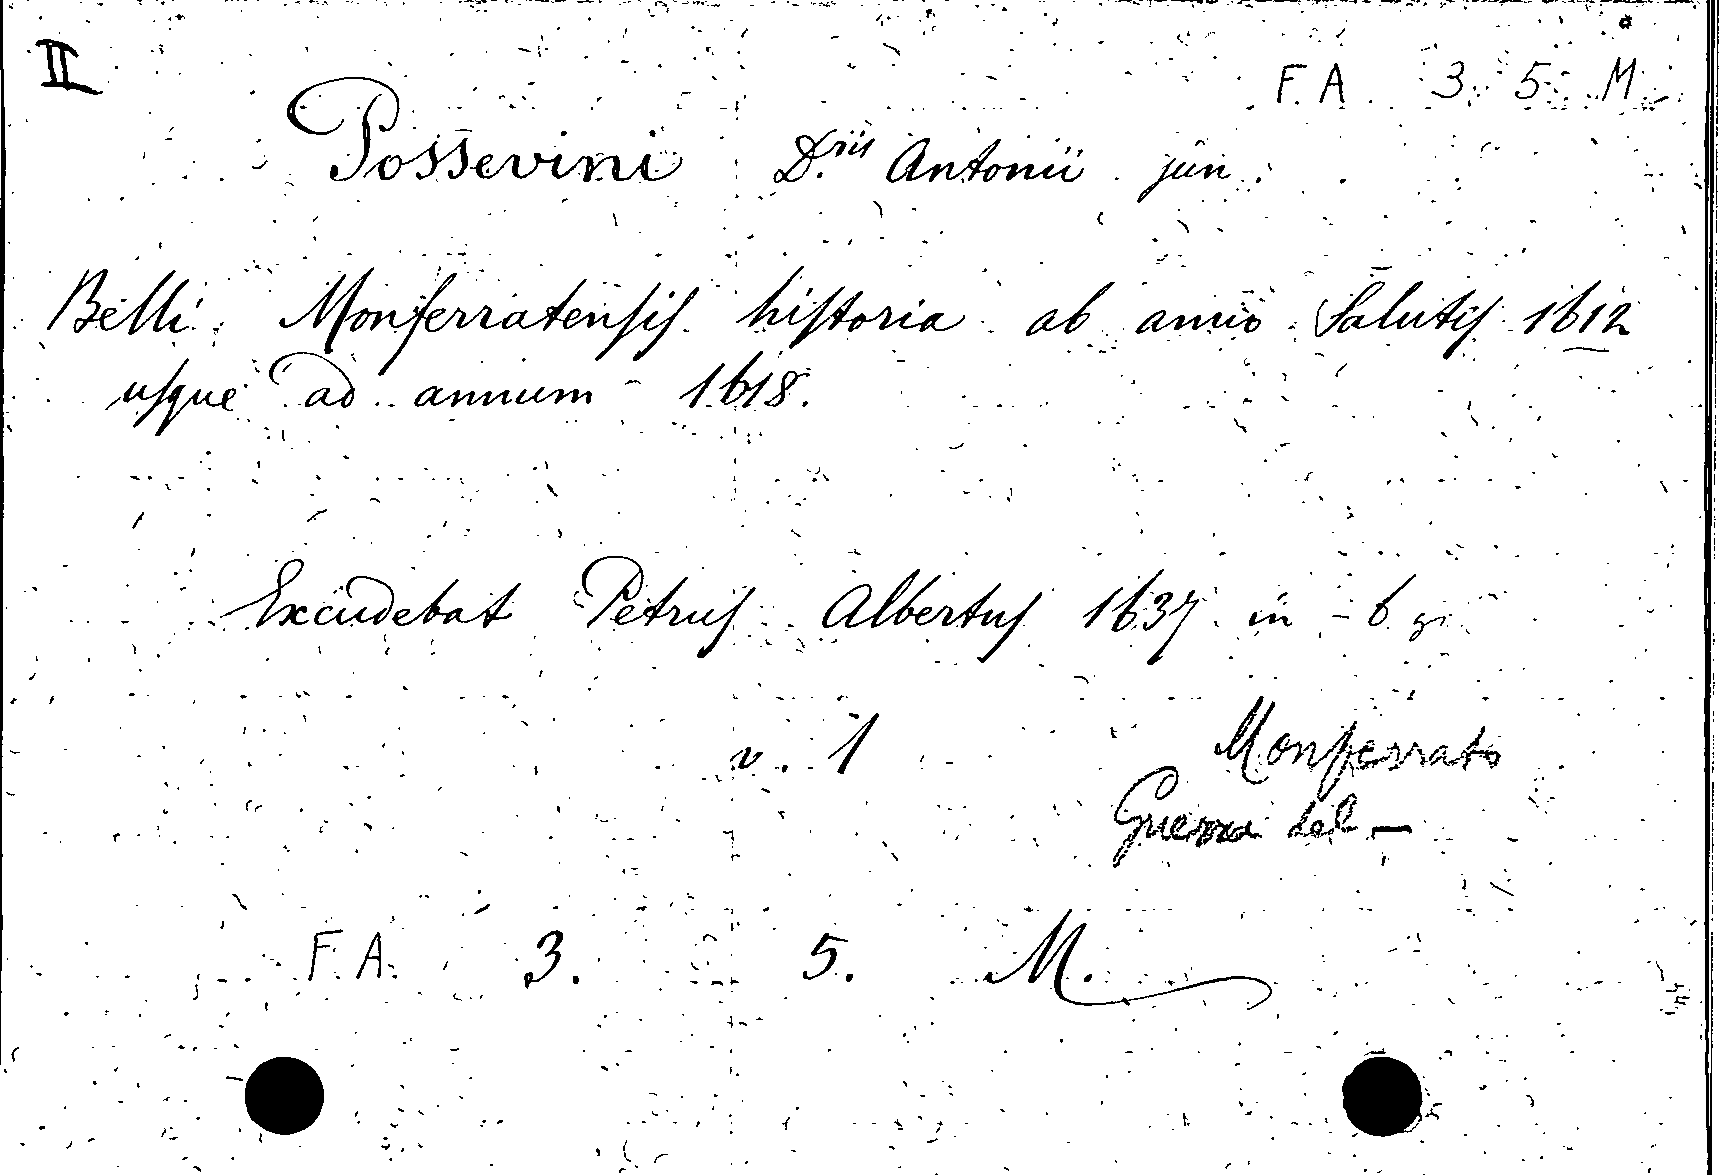 II
F. A 3. 5. M.
Possevini D.ris Antonii jun.
Belli Monferratensis historia ab anno Salutis 1612
usque ad annum 1618.
Excudebat Petrus Albertus 1637 in-6 gr
v. 1
Monferrato
Guerra del —
F. A. 3. 5. M.